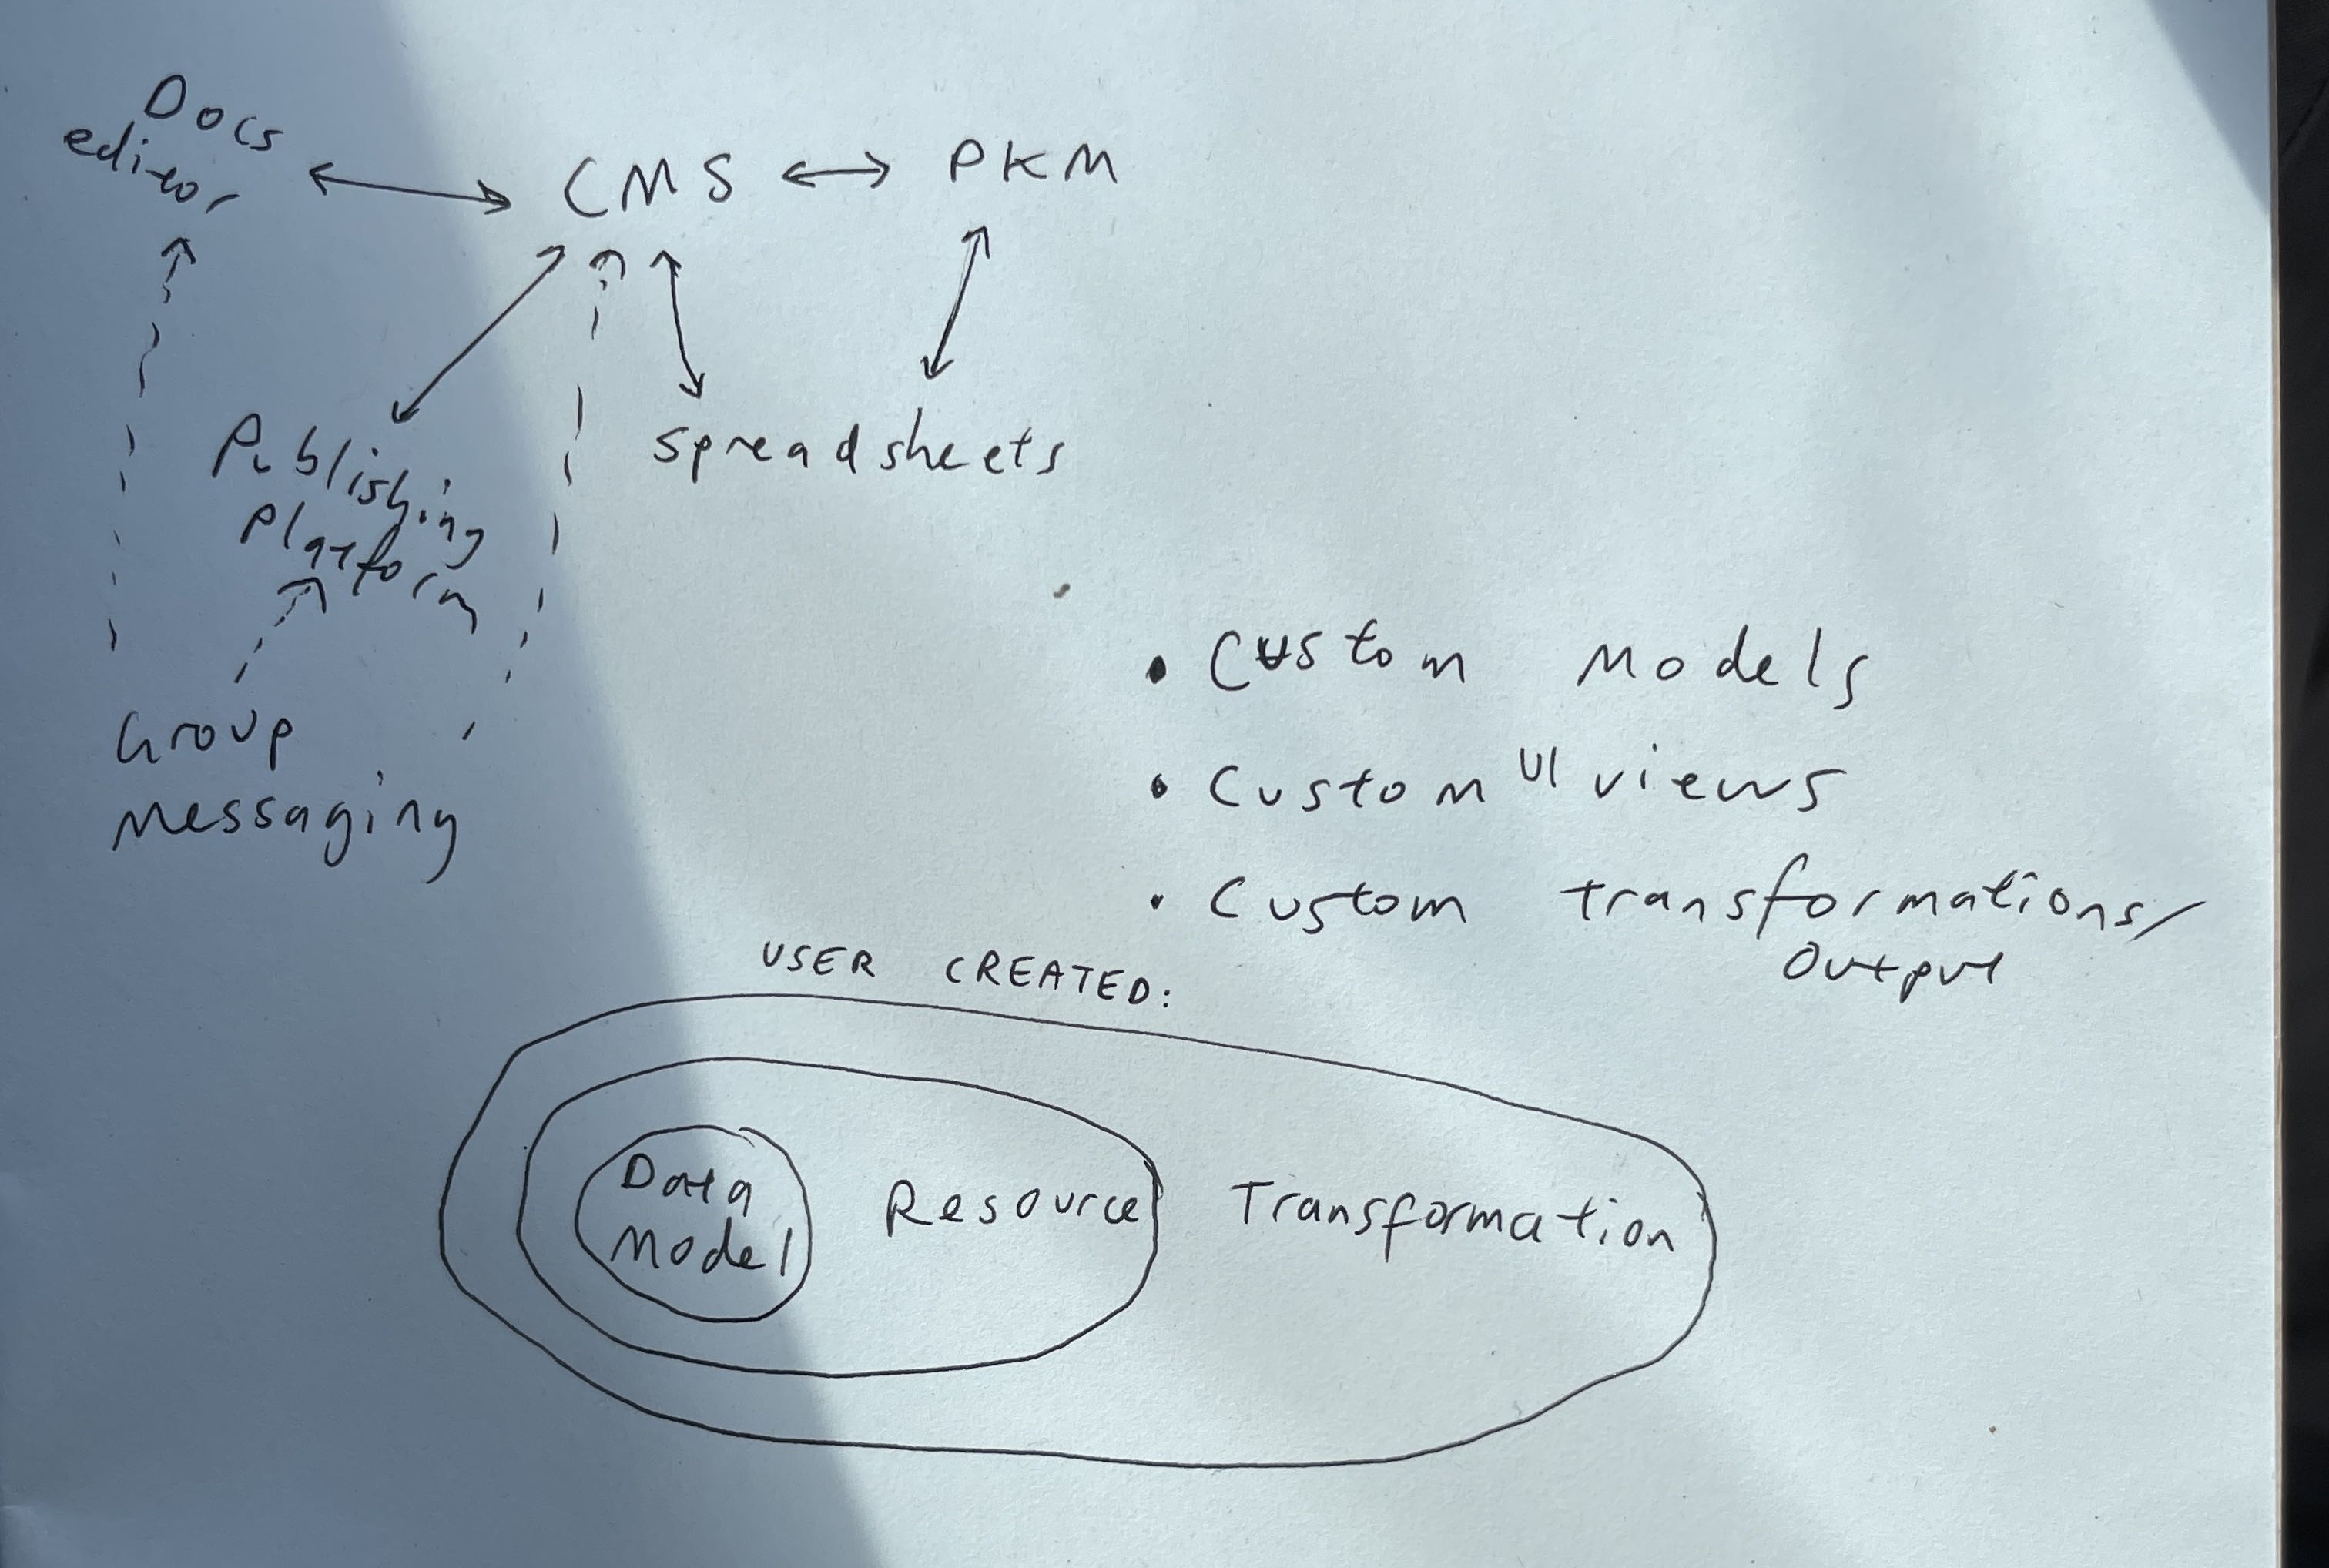 Docs
editor
CMS
PKM
Publishing
Platform
spreadsheets
Group
Messaging
• Custom Models
• Custom UI views
• Custom transformations/
Output
USER CREATED:
Data
Model
Resource
Transformation